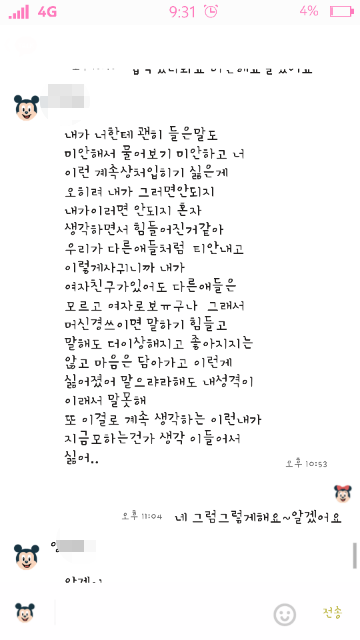 4G 9:31 4%
내가 너한테 괜히 들은말도
미안해서 물어보기 미안하고 너
이런 계속상처입히기 싫은게
오히려 내가 그러면안되지
내가이러면 안되지 혼자
생각하면서 힘들어진거같아
우리가 다른애들처럼 티안내고
이렇게사귀니까 내가
여자친구가있어도 다른애들은
모르고 여자로보ㅠ구나 그래서
머신경쓰이면 말하기 힘들고
말해도 더이상해지고 좋아지지는
않고 마음은 담아가고 이런게
싫어졌어 말으랴라해도 내성격이
이래서 말못해
또 이걸로 계속 생각하는 이런내가
지금모하는건가 생각 이들어서
싫어..
오후 10:53
오후 11:04 네 그럼그렇게해요~알겠어요
전송